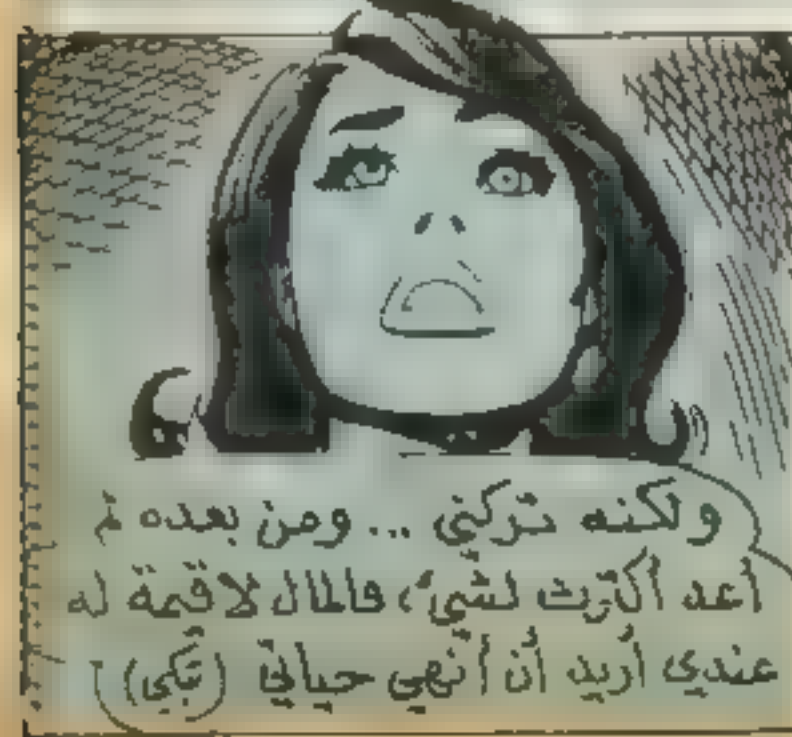 ولكنه تركني ... ومن بعده لم
أعد أكترث لشيء، فالمال لا قيمة له
عندي أريد أن أنهي حياتي (تبكي)